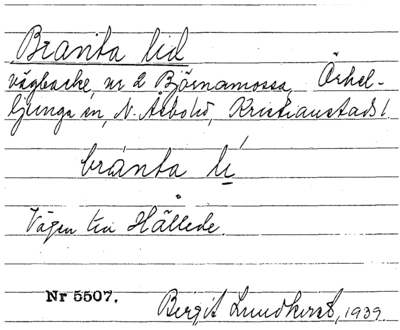 Branta lid
vägbacke, nr 2 Björnamossa, Örkel-
ljunga sn, N. Åsbo hd, Kristianstads l.
bránta lí
Vägen till Hällede.
Nr 5507.
Bergit Lundkvist, 1939.